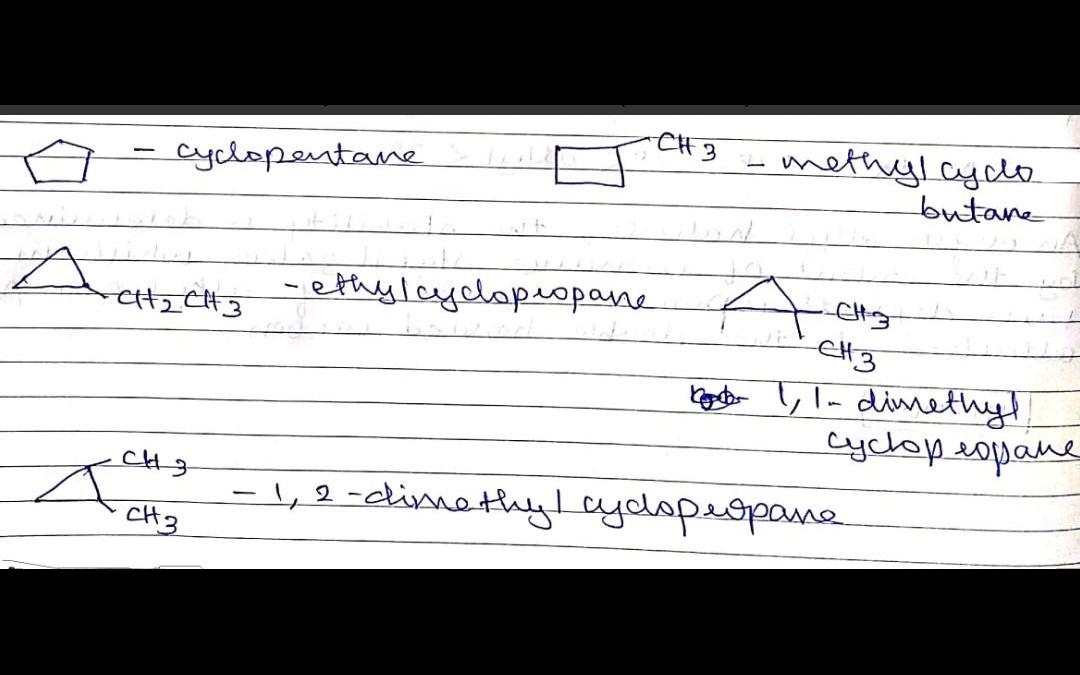 - cyclopentane
CH3 - methyl cyclo
butane
CH2CH3 - ethylcyclopropane
CH3
CH3
1,1- dimethyl
cyclopropane
CH3
CH3 - 1,2-dimethyl cyclopropane